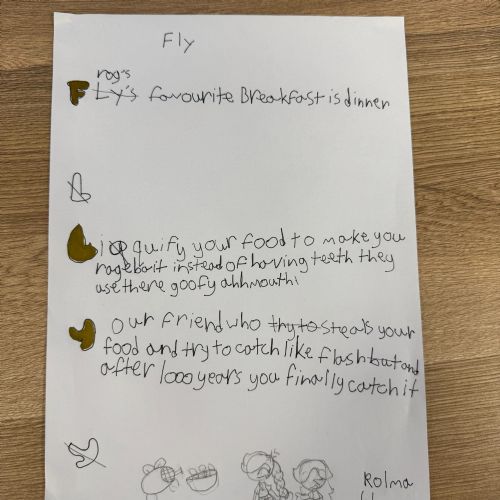 Fly
rog's
F Ly's favourite Breakfast is dinner
L iquify your food to make you
ragebait instead of having teeth they
use there goofy ahh mouth
Y our friend who try to steals your
food and try to catch like flash but and
after 1000 years you finally catch it
Rolma